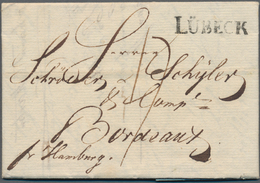 LÜBECK
Herren
Schröder Schÿler
& Comp
Bordeaux
pr Hamburg.